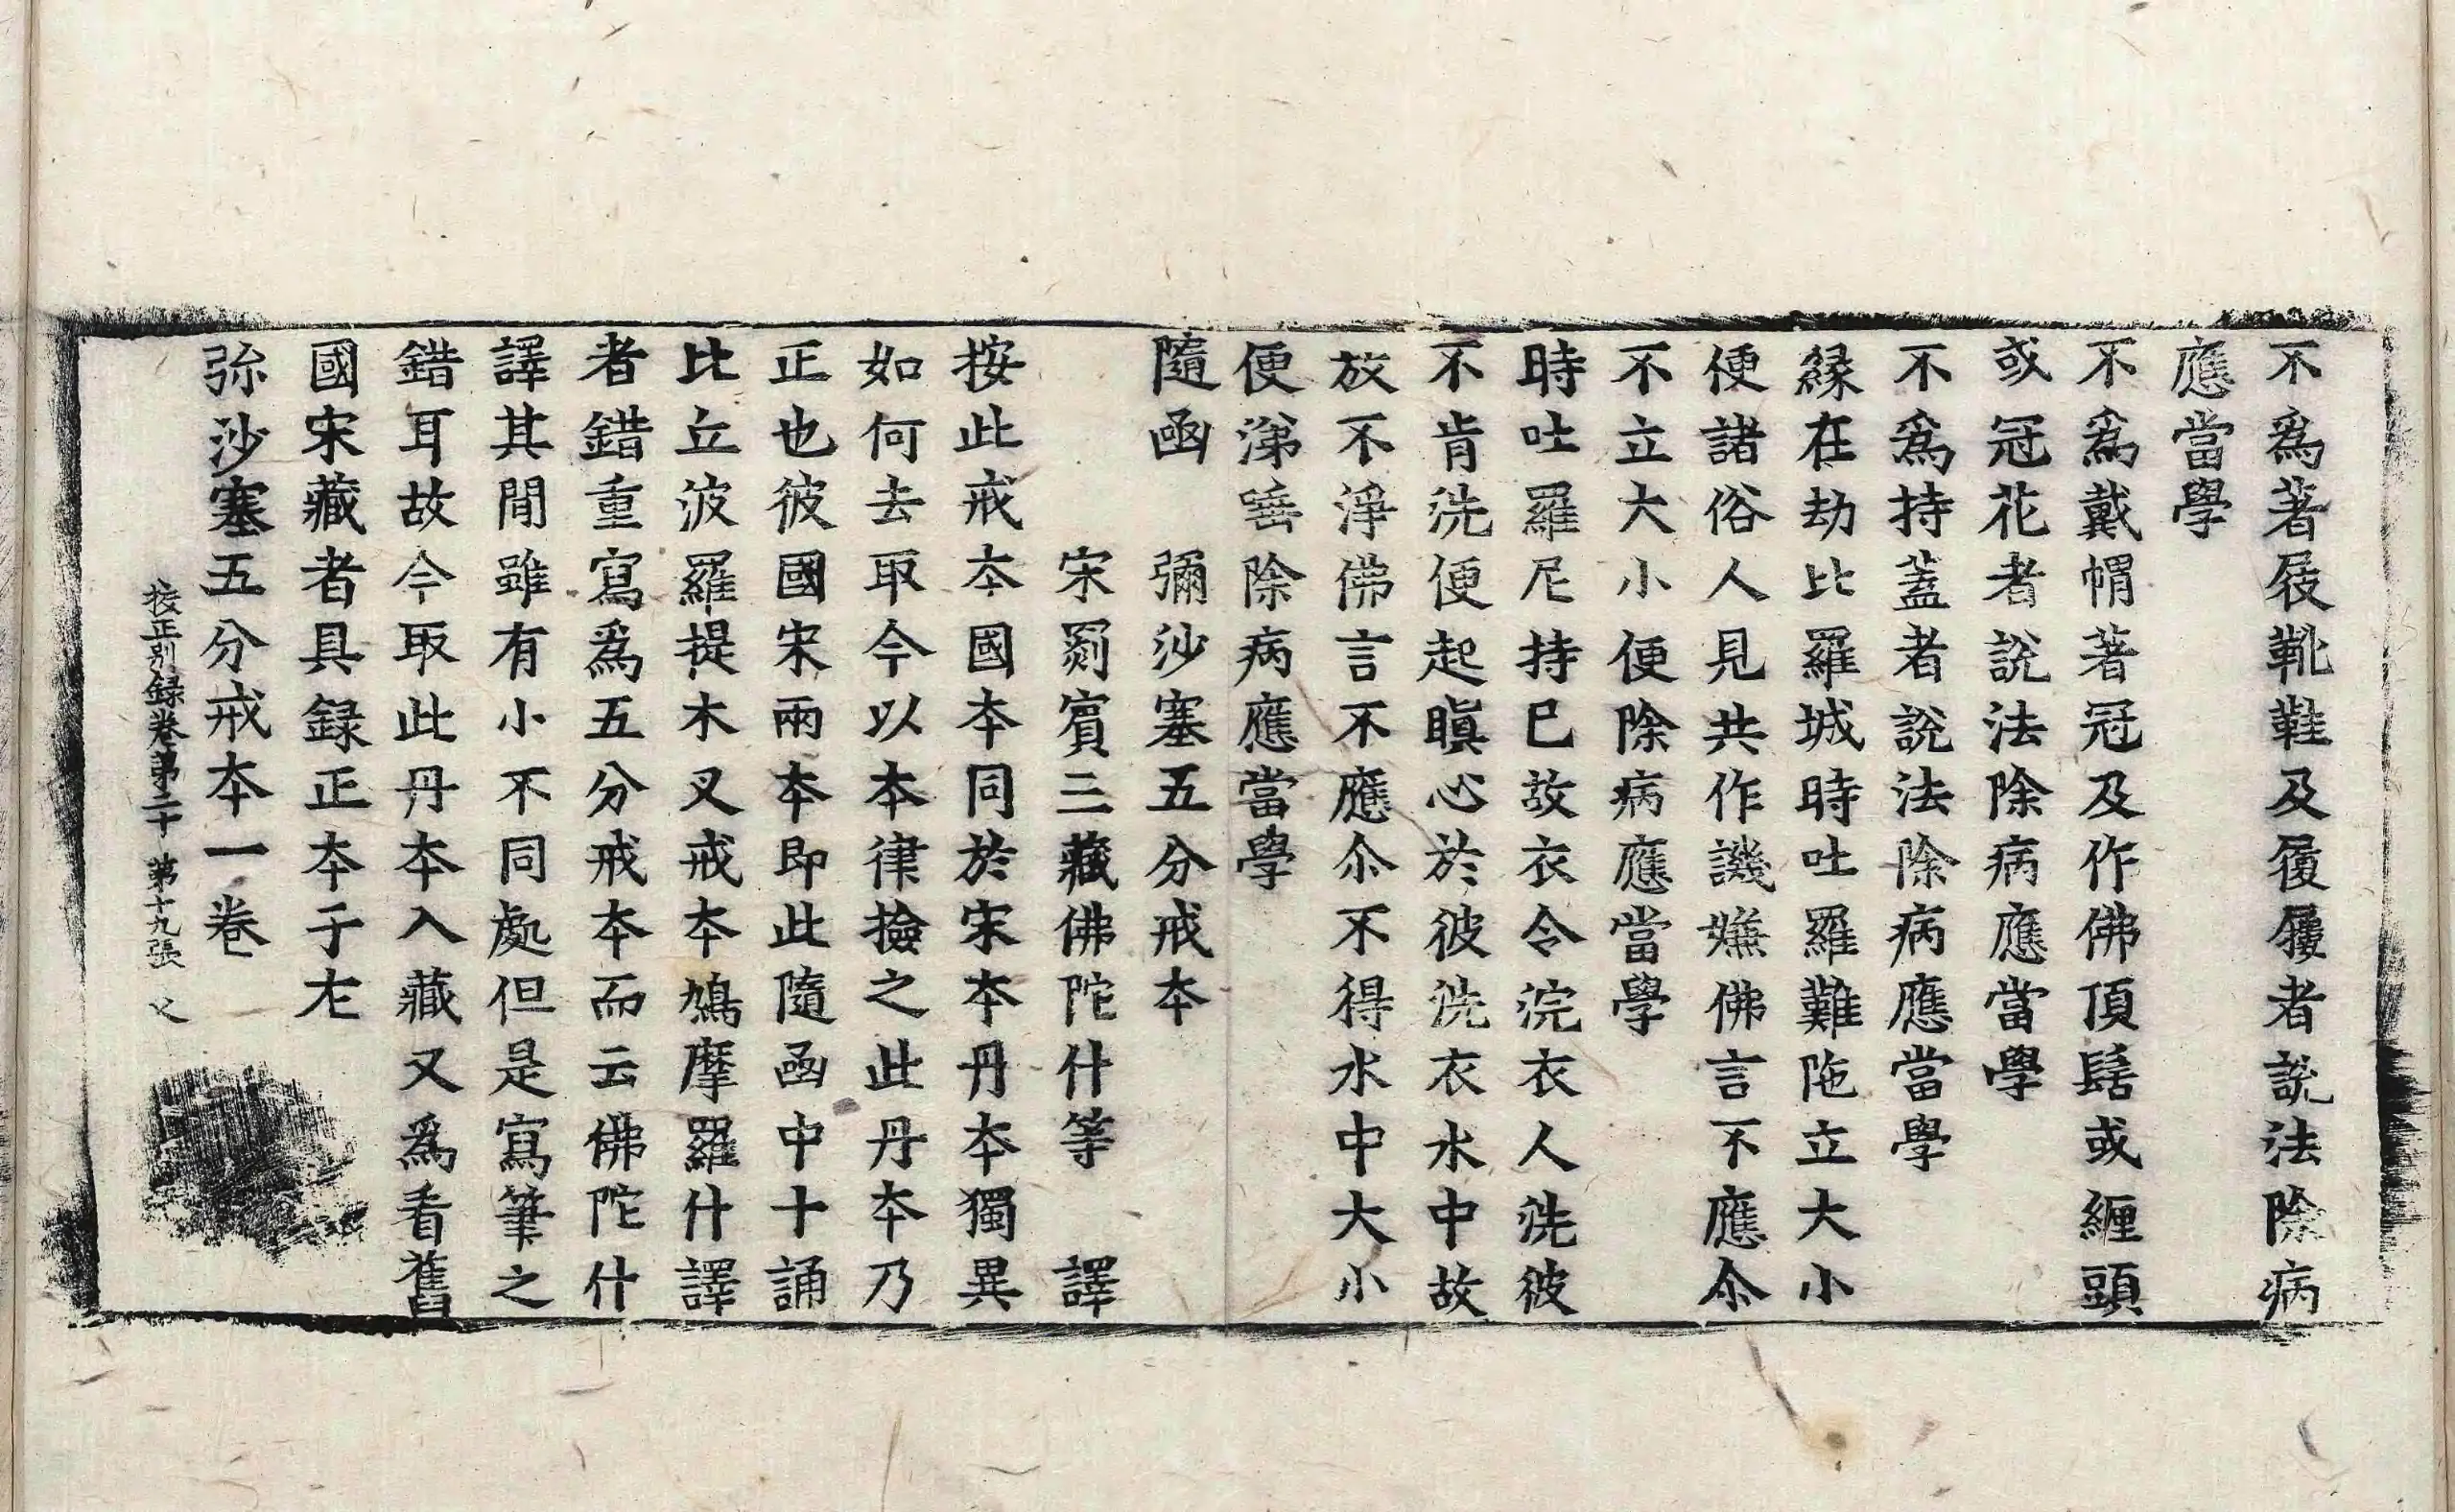 不爲著屐靴鞋及履屨者說法除病
應當學
不爲戴帽著冠及作佛頂髻或纏頭
或冠花者說法除病應當學
不爲持蓋者說法除病應當學
緣在劫比羅城時吐羅難陁立大小
便諸俗人見共作譏嫌佛言不應尒
不立大小便除病應當學
時吐羅尼持已故衣令浣衣人洗彼
不肯洗便起瞋心於彼洗衣水中故
放不淨佛言不應尒不得水中大小
便涕唾除病應當學
隨函　彌沙塞五分戒夲
宋罽賓三藏佛陀什等　譯
按此戒夲國夲同於宋夲丹夲獨異
如何去取今以夲律撿之此丹夲乃
正也彼國宋兩夲即此隨函中十誦
比丘波羅提木叉戒夲鳩摩羅什譯
者錯重寫爲五分戒夲而云佛陀什
譯其閒雖有小不同處但是寫筆之
錯耳故今取此丹夲入藏又爲看舊
國宋藏者具録正夲于左
弥沙塞五分戒夲一卷
挍正別録卷第二十　第十九張　乂